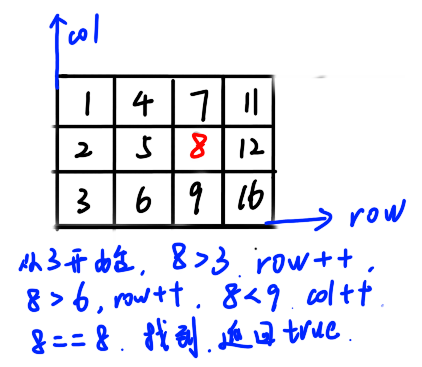 col
1 4 7 11
2 5 8 12
3 6 9 16
row
从3开始. 8>3. row++.
8>6, row++. 8<9. col++.
8==8. 找到. 返回true.